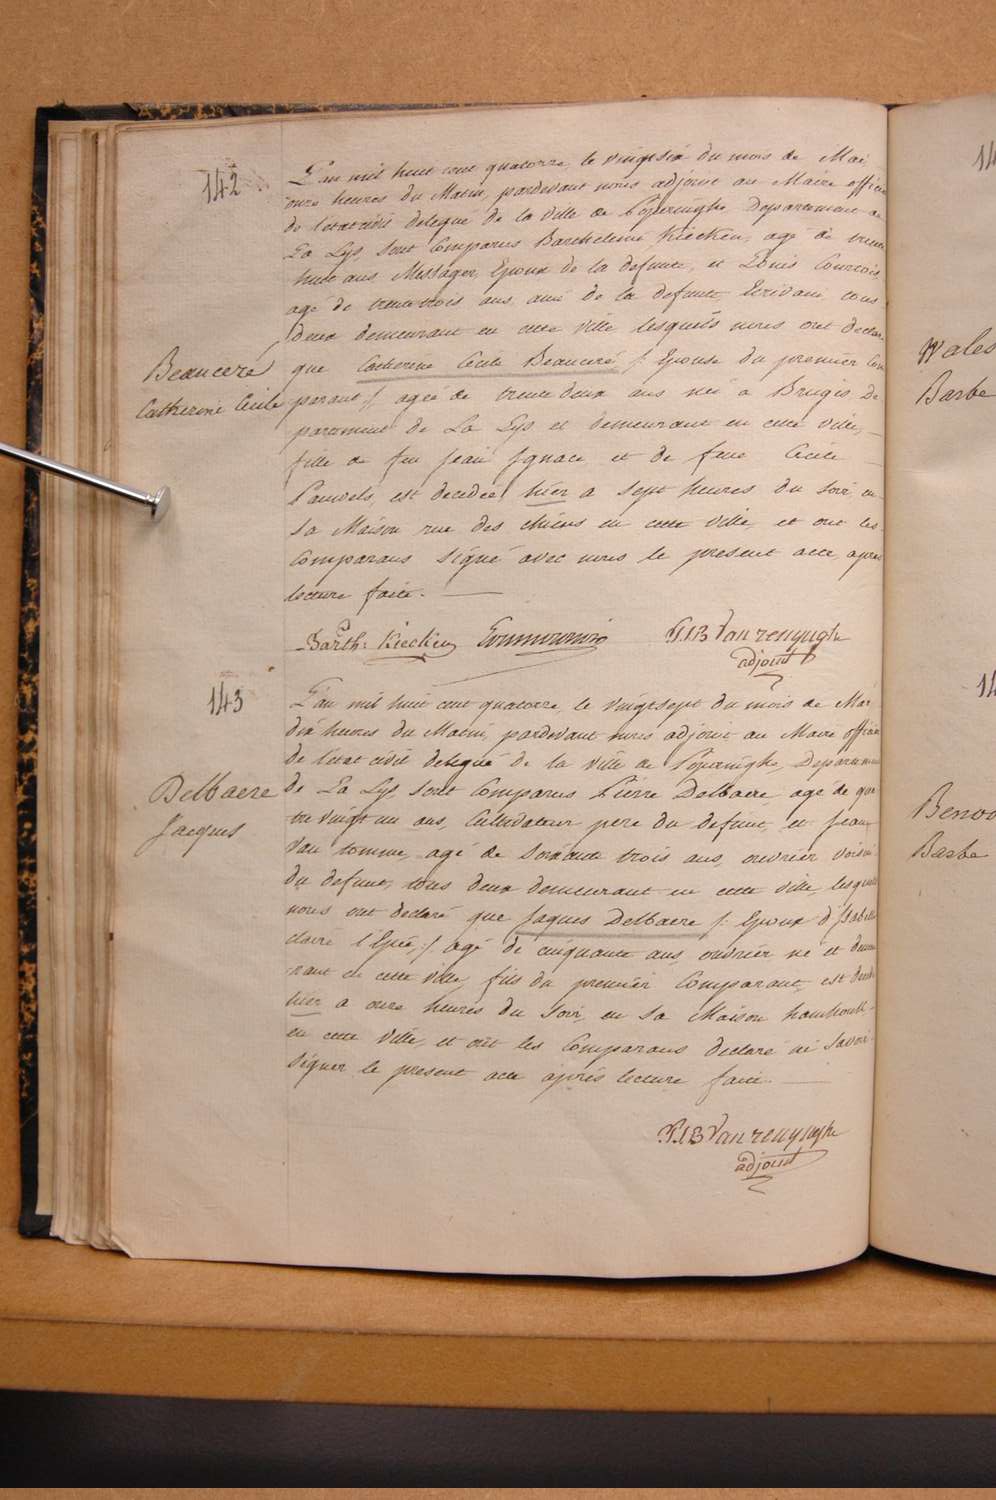 142
L'an mil huit cent quatorze, le vingtsix du mois de Mai,
onze heures du Matin, pardevant nous adjoint au Maire officier
de l'etat civil delegué de la ville de Poperinghe Departement de
La Lys, sont Comparus Barthelemi Kiecken, agé de trente
huit ans Messager, Epoux de la defunte, et Louis Courtois
agé de trente trois ans, ami de la defunte Ecrivain tous
deux demeurant en cette ville lesquels nous ont declaré
Beauceré
Catherine Cecile
que Catherine Cecile Beauceré /: Epouse du premier Com
parant :/ agée de trente deux ans née a Bruges De
partement de La Lys et demeurant en cette ville,
fille de feu Jean Ignace et de feue Cecile
Pauwels, est decedée hier a sept heures du soir, en
sa Maison rue des chiens en cette ville, et ont les
Comparans signé avec nous le present acte, après
lecture faite.
Barth: Kiecken
P.J.B Van renynghe
adjoint
143
L'an mil huit cent quatorze, le vingtsept du mois de Mai
dix heures du Matin, pardevant nous adjoint au Maire officier
de l'etat civil delegué de la ville de Poperinghe, Departement
Delbaere
Jacques
de La Lys, sont Comparus Pierre Delbaere, agé de qua
tre vingt un ans, Cultivateur pere du defunt, et Jean
Van tomme, agé de soixante trois ans, ouvrier voisin
du defunt, tous deux demeurant en cette ville lesquels
nous ont declaré que Jaques Delbaere /: Epoux d'Isabelle
claire l'Epée, :/ agé de cinquante ans, ouvrier né et demeu
rant en cette ville, fils du premier Comparant, est decedé
hier a onze heures du soir, en sa Maison
en cette ville, et ont les Comparans declaré ne savoir
signer le present acte après lecture faite.
P.J.B Van renynghe
adjoint
14
Wales
Barbe
14
Benoo
Barbe